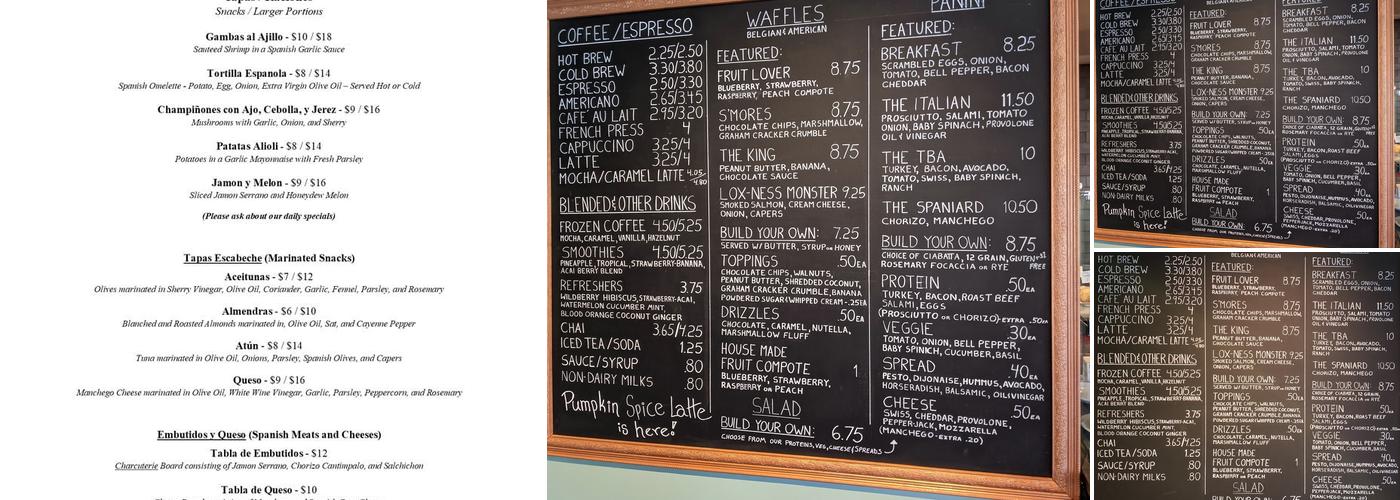 Snacks / Larger Portions
Gambas al Ajillo - $10 / $18
Sauteed Shrimp in a Spanish Garlic Sauce
Tortilla Espanola - $8 / $14
Spanish Omelette - Potato, Egg, Onion, Extra Virgin Olive Oil – Served Hot or Cold
Champiñones con Ajo, Cebolla, y Jerez - $9 / $16
Mushrooms with Garlic, Onion, and Sherry
Patatas Alioli - $8 / $14
Potatoes in a Garlic Mayonnaise with Fresh Parsley
Jamon y Melon - $9 / $16
Sliced Jamon Serrano and Honeydew Melon
(Please ask about our daily specials)
Tapas Escabeche (Marinated Snacks)
Aceitunas - $7 / $12
Olives marinated in Sherry Vinegar, Olive Oil, Coriander, Garlic, Fennel, Parsley, and Rosemary
Almendras - $6 / $10
Blanched and Roasted Almonds marinated in, Olive Oil, Sat, and Cayenne Pepper
Atún - $8 / $14
Tuna marinated in Olive Oil, Onions, Parsley, Spanish Olives, and Capers
Queso - $9 / $16
Manchego Cheese marinated in Olive Oil, White Wine Vinegar, Garlic, Parsley, Peppercorn, and Rosemary
Embutidos y Queso (Spanish Meats and Cheeses)
Tabla de Embutidos - $12
Charcuterie Board consisting of Jamon Serrano, Chorizo Cantimpalo, and Salchichon
Tabla de Queso - $10
COFFEE/ESPRESSO
HOT BREW 2.25/2.50
COLD BREW 3.30/3.80
ESPRESSO 2.50/3.30
AMERICANO 2.65/3.45
CAFE AU LAIT 2.95/3.20
FRENCH PRESS 4
CAPPUCCINO 3.25/4
LATTE 3.25/4
MOCHA/CARAMEL LATTE 4.05/4.80
BLENDED & OTHER DRINKS
FROZEN COFFEE 4.50/5.25
MOCHA, CARAMEL, VANILLA, HAZELNUT
SMOOTHIES 4.50/5.25
PINEAPPLE, TROPICAL, STRAWBERRY-BANANA,
ACAI BERRY BLEND
REFRESHERS 3.75
WILDBERRY HIBISCUS, STRAWBERRY-ACAI,
WATERMELON CUCUMBER MINT,
BLOOD ORANGE COCONUT GINGER
CHAI 3.65/4.25
ICED TEA/SODA 1.25
SAUCE/SYRUP .80
NON-DAIRY MILKS .80
Pumpkin Spice Latte
is here!
WAFFLES
BELGIAN & AMERICAN
FEATURED:
FRUIT LOVER 8.75
BLUEBERRY, STRAWBERRY,
RASPBERRY, PEACH COMPOTE
S'MORES 8.75
CHOCOLATE CHIPS, MARSHMALLOW,
GRAHAM CRACKER CRUMBLE
THE KING 8.75
PEANUT BUTTER, BANANA,
CHOCOLATE SAUCE
LOX-NESS MONSTER 9.25
SMOKED SALMON, CREAM CHEESE,
ONION, CAPERS
BUILD YOUR OWN: 7.25
SERVED W/ BUTTER, SYRUP OR HONEY
TOPPINGS .50EA
CHOCOLATE CHIPS, WALNUTS,
PEANUT BUTTER, SHREDDED COCONUT,
GRAHAM CRACKER CRUMBLE, BANANA
POWDERED SUGAR & WHIPPED CREAM-.25EA
DRIZZLES .50EA
CHOCOLATE, CARAMEL, NUTELLA,
MARSHMALLOW FLUFF
HOUSE MADE
FRUIT COMPOTE 1
BLUEBERRY, STRAWBERRY,
RASPBERRY OR PEACH
SALAD
BUILD YOUR OWN: 6.75
CHOOSE FROM OUR PROTEINS, VEG, CHEESE & SPREADS
PANINI
FEATURED:
BREAKFAST 8.25
SCRAMBLED EGGS, ONION,
TOMATO, BELL PEPPER, BACON
CHEDDAR
THE ITALIAN 11.50
PROSCIUTTO, SALAMI, TOMATO
ONION, BABY SPINACH, PROVOLONE
OIL & VINEGAR
THE TBA 10
TURKEY, BACON, AVOCADO,
TOMATO, SWISS, BABY SPINACH,
RANCH
THE SPANIARD 10.50
CHORIZO, MANCHEGO
BUILD YOUR OWN: 8.75
CHOICE OF CIABATA, 12 GRAIN, GLUTEN
ROSEMARY FOCACCIA OR RYE FREE
PROTEIN .50EA
TURKEY, BACON, ROAST BEEF
SALAMI, EGGS
(PROSCIUTTO OR CHORIZO)-EXTRA .50EA
VEGGIE .30EA
TOMATO, ONION, BELL PEPPER,
BABY SPINICH, CUCUMBER, BASIL
SPREAD .40EA
PESTO, DIJONAISE, HUMMUS, AVOCADO,
HORSERADISH, BALSAMIC, OIL, VINEGAR
CHEESE .50EA
SWISS, CHEDDAR, PROVOLONE,
PEPPERJACK, MOZZARELLA
(MANCHEGO-EXTRA .20)